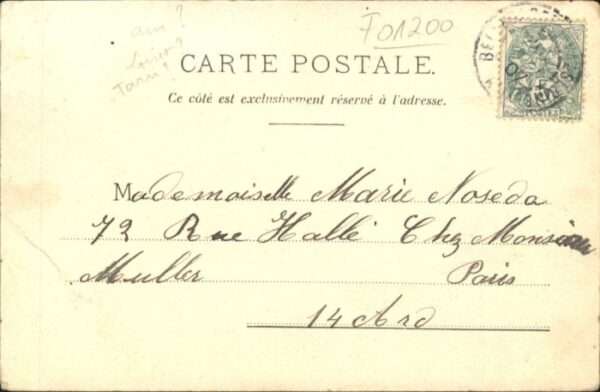 F01200
CARTE POSTALE.
Ce côté est exclusivement réservé à l'adresse.
Mademoiselle Marie Noseda
72 Rue Hallé Chez Monsieur
Muller Paris
14 Ard